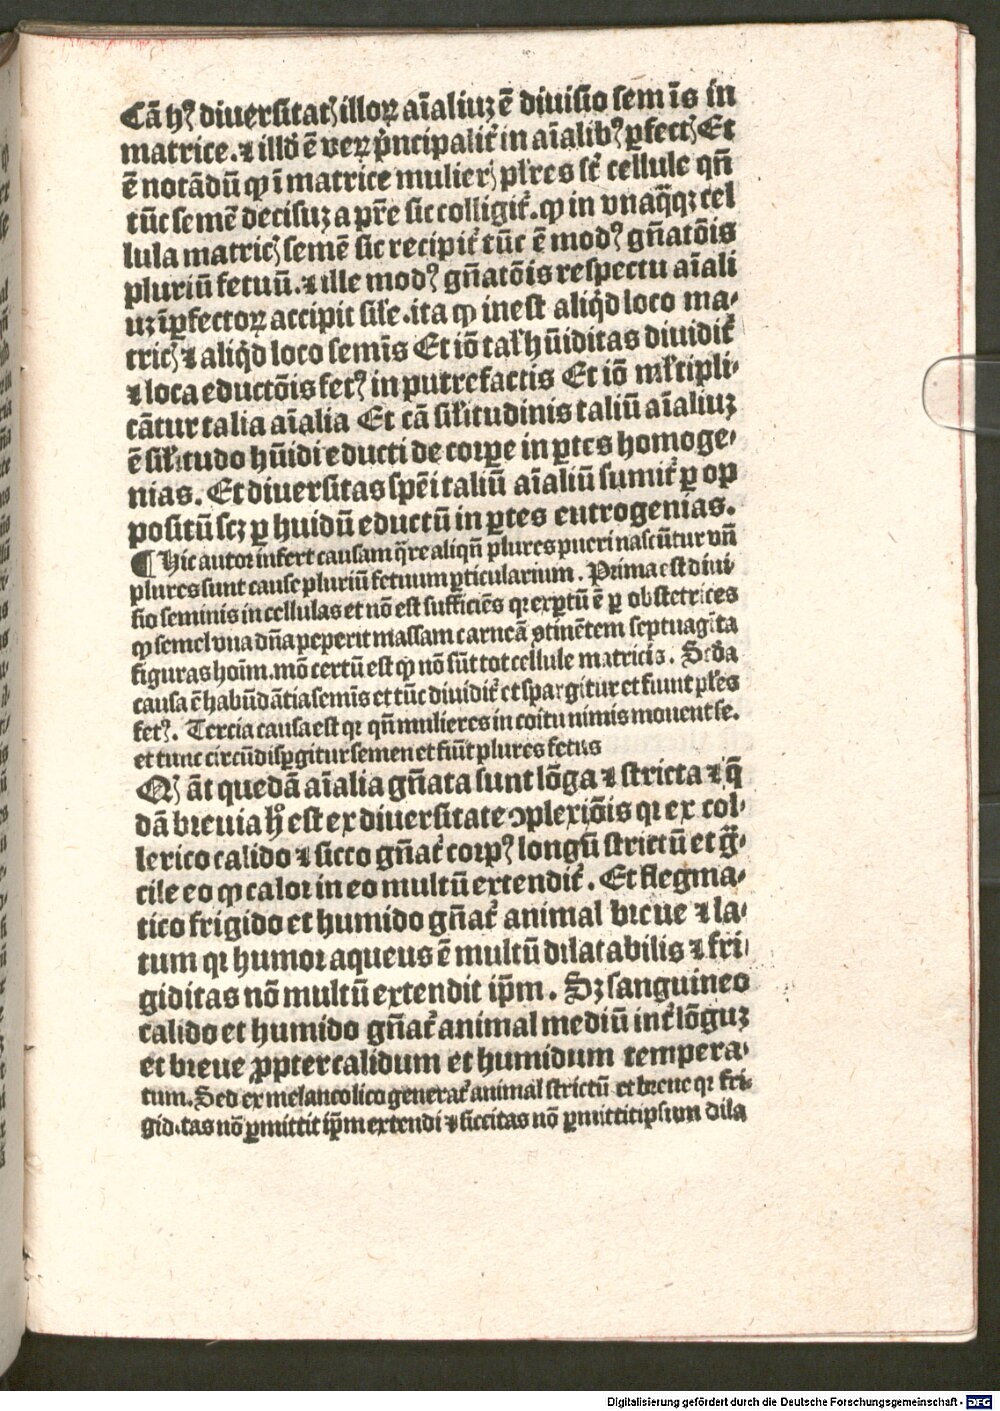 Cā hꝰ diuersitatꝭ illoꝝ aīaliuꝫ ē diuisio sem̄is in
matrice. ⁊ illd̄ ē veꝝ p̄ncipalit̾ in aīalibꝰ ꝑfectꝭ Et
ē notādū ꝙ ī matrice mulierꝭ plr̄es st̾ cellule qn̄
tūc semē decisuꝫ a pr̄e sic colligit̾. ꝙ in vnaq̄qꝫ cel
lula matricꝭ semē sic recipit̾ tūc ē modꝰ gn̄atōis
pluriū fetuū. ⁊ ille modꝰ gn̄atōis respectu aīali
uꝫ īꝑfectoꝝ accipit sil̄e. ita ꝙ inest aliq̄d loco ma⸗
tricꝭ ⁊ aliq̄d loco sem̄is Et iō tal̄ hūiditas diuidit̾
⁊ loca eductōis fetꝰ in putrefactis Et iō ml̄tipli⸗
cātur talia aīalia Et cā sil̄itudinis taliū aīaliuꝫ
ē sil̄itudo hūidi educti de corꝑe in ꝑtes homoge⸗
nias. Et diuersitas spēi taliū aīaliū sumit̾ ꝑ op
positū scꝫ ꝑ huidū eductū in ꝑtes eutrogenias.
¶ Hic autor infert causam q̄re aliqn̄ plures pueri nascūtur vn̄
plures sunt cause pluriū fetuum ꝑticularium. Prima est diui⸗
sio seminis in cellulas et nō est sufficiēs qꝛ exꝑtū ē ꝑ obstetrices
ꝙ semel vna dn̄a peperit massam carneā ꝯtinētem septuagīta
figuras hoīm. mō certū est ꝙ nō sūt tot cellule matricis. Scd̄a
causa ē habūdātia sem̄is et tūc diuidit̾ et spargitur et fiunt pl̄es
fetꝰ. Tercia causa est qꝛ qn̄ mulieres in coitu nimis mouent se.
et tunc circūdisꝑgitur semen et fiūt plures fetus
Qꝭ āt quedā aīalia gn̄ata sunt lōga ⁊ stricta ⁊ q̄
dā breuia hͦ est ex diuersitate ꝯplexiōis qꝛ ex col⸗
lerico calido ⁊ sicco gn̄at̾ corpꝰ longū strictū et ḡ⸗
cile eo ꝙ calor in eo multū extendit̾. Et flegma⸗
tico frigido et humido gn̄at̾ animal breue ⁊ la⸗
tum qꝛ humor aqueus ē multū dilatabilis ⁊ fri⸗
giditas nō multū extendit ip̄m. Sꝫ sanguineo
calido et humido gn̄at̾ animal mediū int̾ lōguꝫ
et breue ꝓpter calidum et humidum tempera⸗
tum. Sed ex melancolico generat̾ animal strictū et breue qꝛ fri⸗
giditas nō ꝑmittit ip̄m extendi ⁊ siccitas nō ꝑmittit ipsum dila
Digitalisierung gefördert durch die Deutsche Forschungsgemeinschaft - DFG